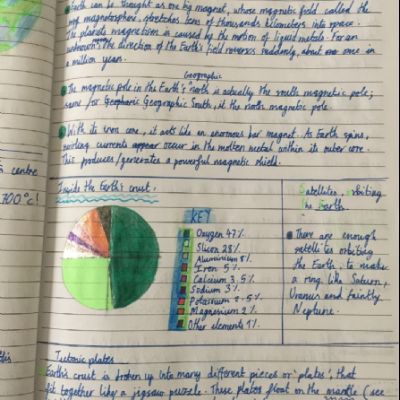 Earth can be thought as one big magnet, whose magnetic field called the
magnetosphere, stretches tens of thousands kilometers into space.
The planets magnetism is caused by the motion of liquid metals. For an
unknown, the direction of the Earth's field reverses randomly, about one once in
a million years.
Geographic
The magnetic pole in the Earth's north is actually the south magnetic pole;
same for Geographic South, it the north magnetic pole.
With its iron core, it acts like an enormous bar magnet. As Earth spins,
swirling currents appear occur in the molten metal within its outer core.
This produces/generates a powerful magnetic shield.
centre
700°C!
Inside the Earth's crust.
KEY
Oxygen 47%
Silicon 28%
Aluminium 8%
Iron 5%
Calcium 3.5%
Sodium 3%
Potassium 2.5%
Magnesium 2%
Other elements 1%
Satellites orbiting
the Earth
There are enough
satellites orbiting
the Earth, to make
a ring like Saturn,
Uranus and faintly
Neptune.
this
Tectonic plates
Earth's crust is broken up into many different pieces or 'plates', that
fit together like a jigsaw puzzle. These plates float on the mantle (see